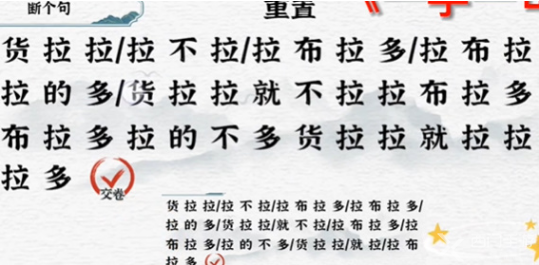 断个句
重置
货拉拉/拉不拉/拉布拉多/拉布拉
拉的多/货拉拉就不拉拉布拉多
布拉多拉的不多货拉拉就拉拉
拉多
交卷
货拉拉/拉不拉/拉布拉多/拉布拉多/
拉的多/货拉拉/就不拉/拉布拉多/拉
布拉多/拉的不多/货拉拉/就拉/拉布
拉多